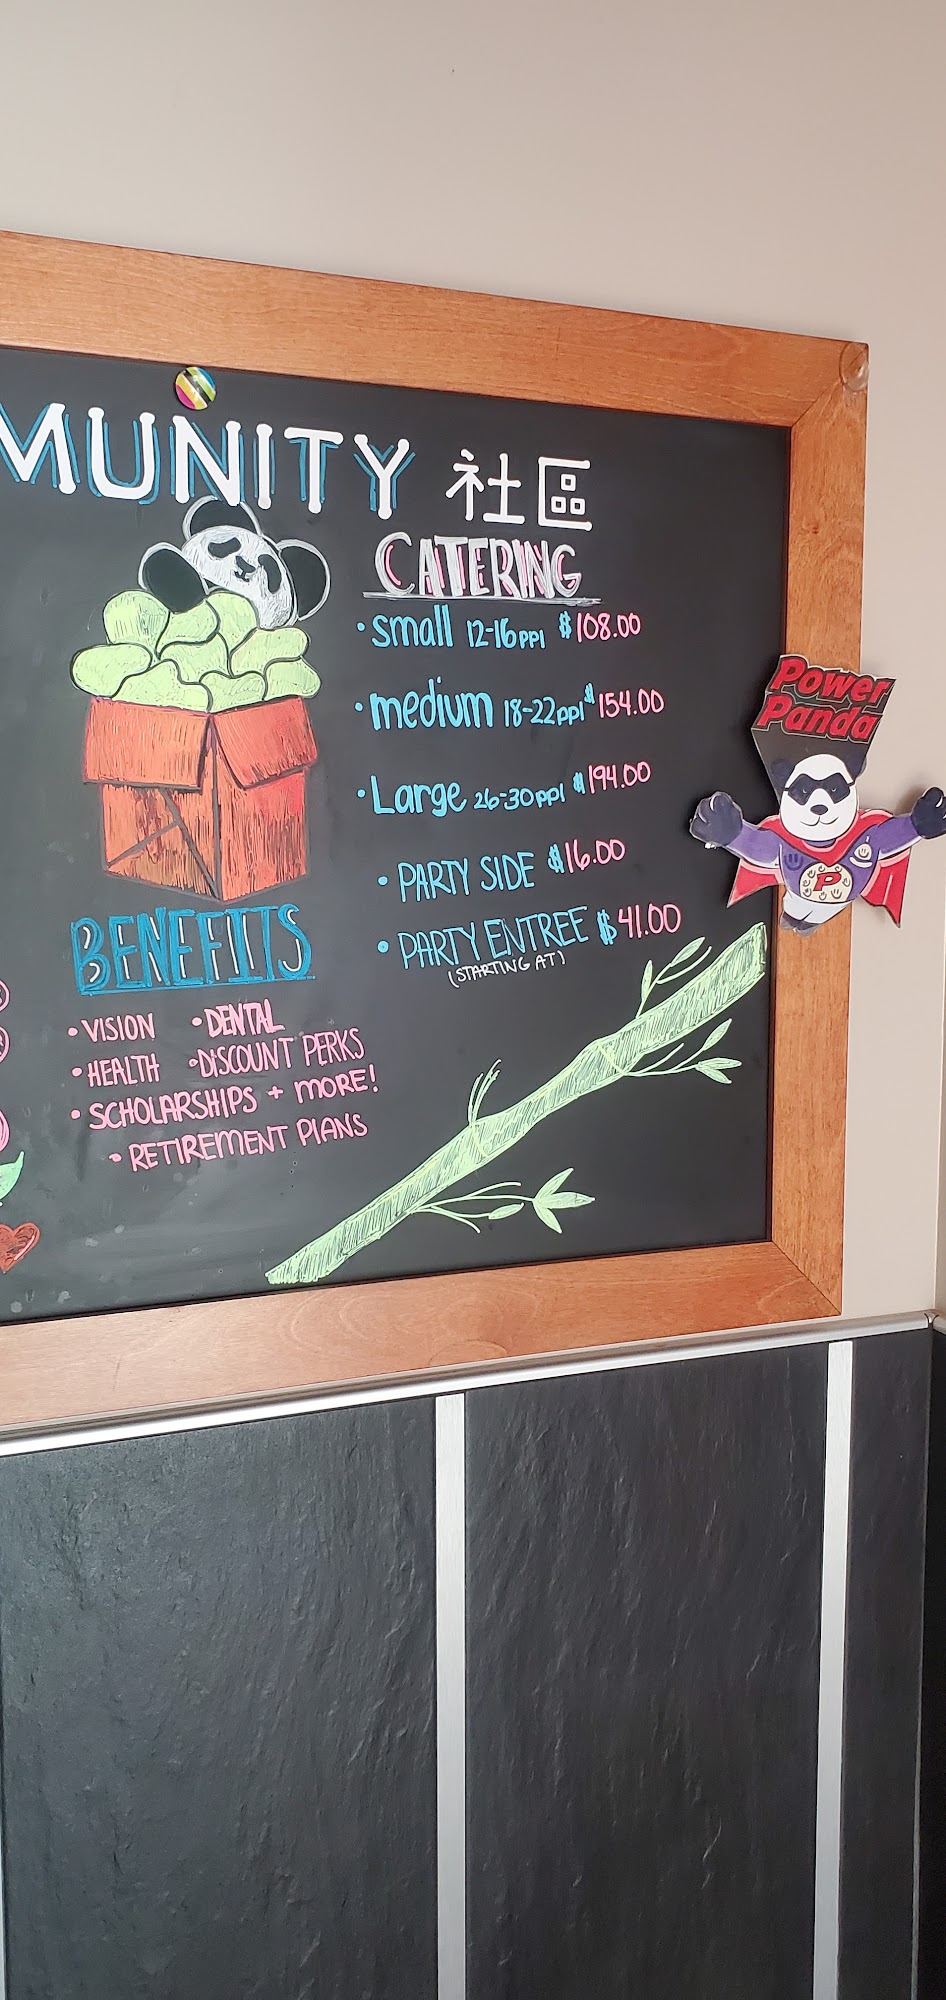 MUNITY 社區
CATERING
• small 12-16ppl $108.00
• medium 18-22ppl $154.00
• Large 26-30ppl $194.00
• PARTY SIDE $16.00
• PARTY ENTREE $41.00
(STARTING AT)
BENEFITS
• VISION • DENTAL
• HEALTH • DISCOUNT PERKS
• SCHOLARSHIPS + MORE!
• RETIREMENT PLANS
Power
Panda
P